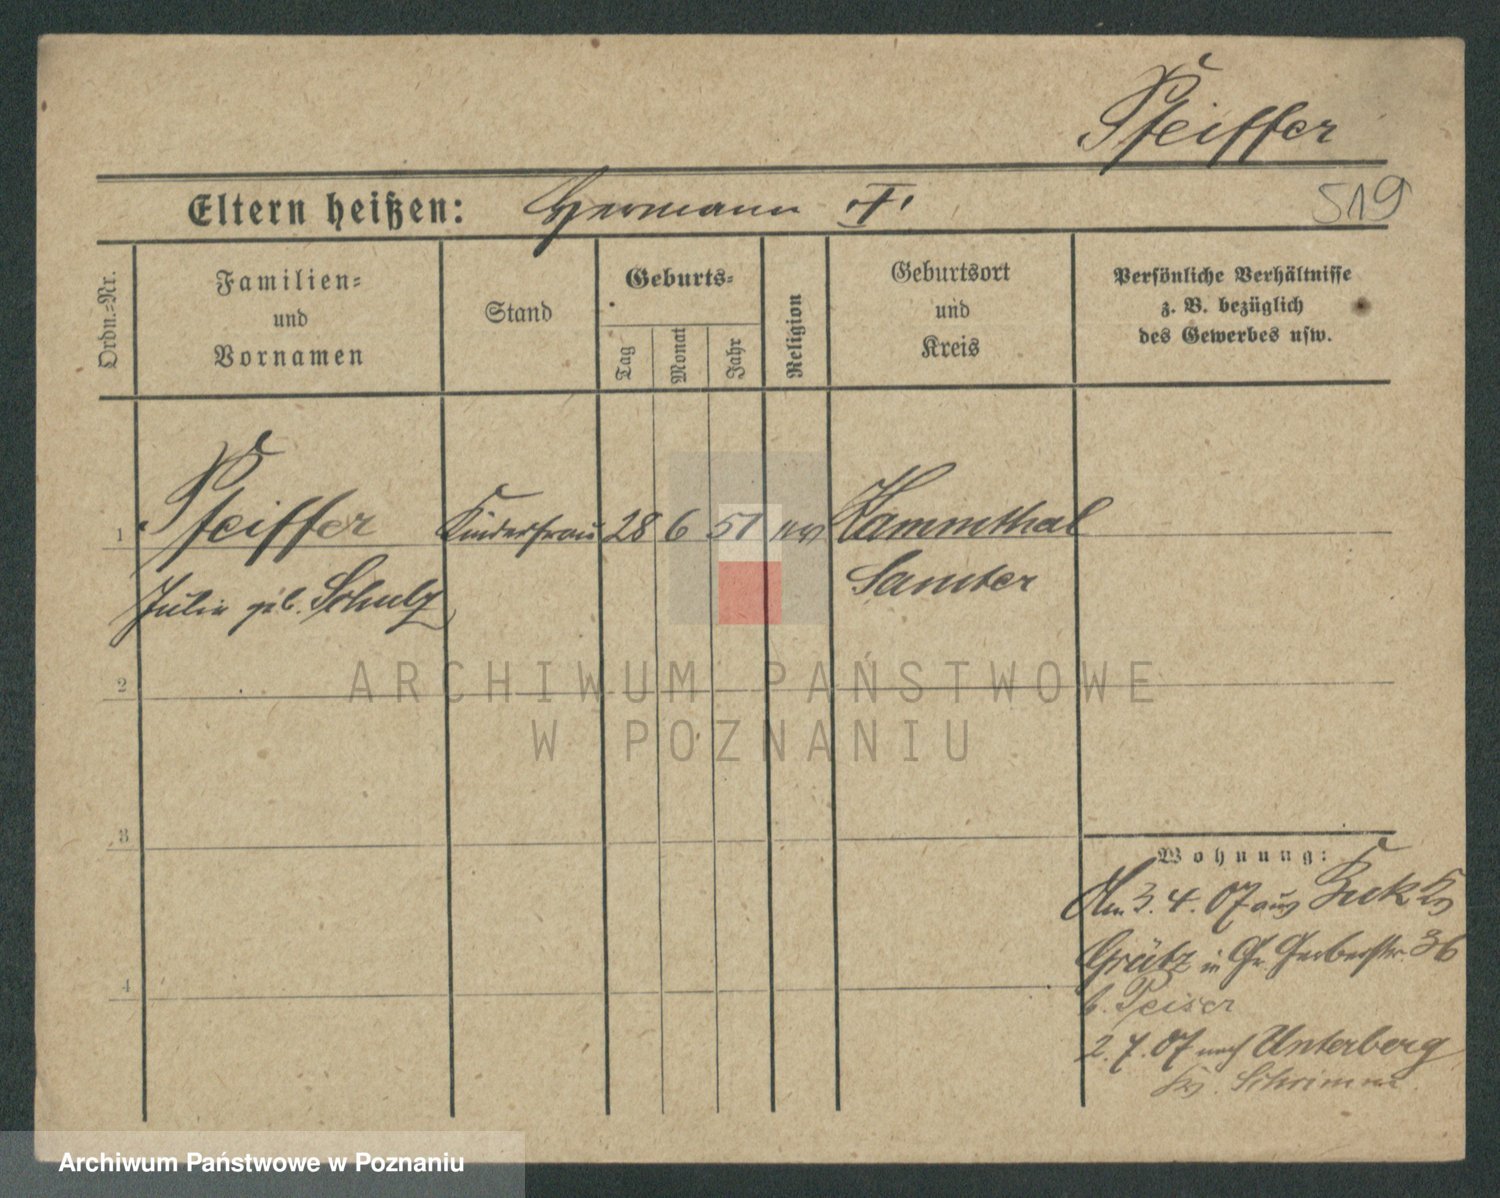 Pfeiffer
Eltern heißen: Hermann
519
Ordn.-Nr.
Familien-
und
Vornamen
Stand
Geburts-
Tag
Monat
Jahr
Religion
Geburtsort
und
Kreis
Persönliche Verhältnisse
z. B. bezüglich
des Gewerbes usw.
1 Pfeiffer Kinderfrau 28 6 51 Hammthal
Julie geb. Schulz Samter
2
ARCHIWUM PAŃSTWOWE
W POZNANIU
3
Wohnung:
Am 3. 4. 07 aus Kr
Grätz in Gr. Gerberstr. 36
4
b. Peiser
2. 7. 07 nach Unterberg
Kr. Schrimm
Archiwum Państwowe w Poznaniu